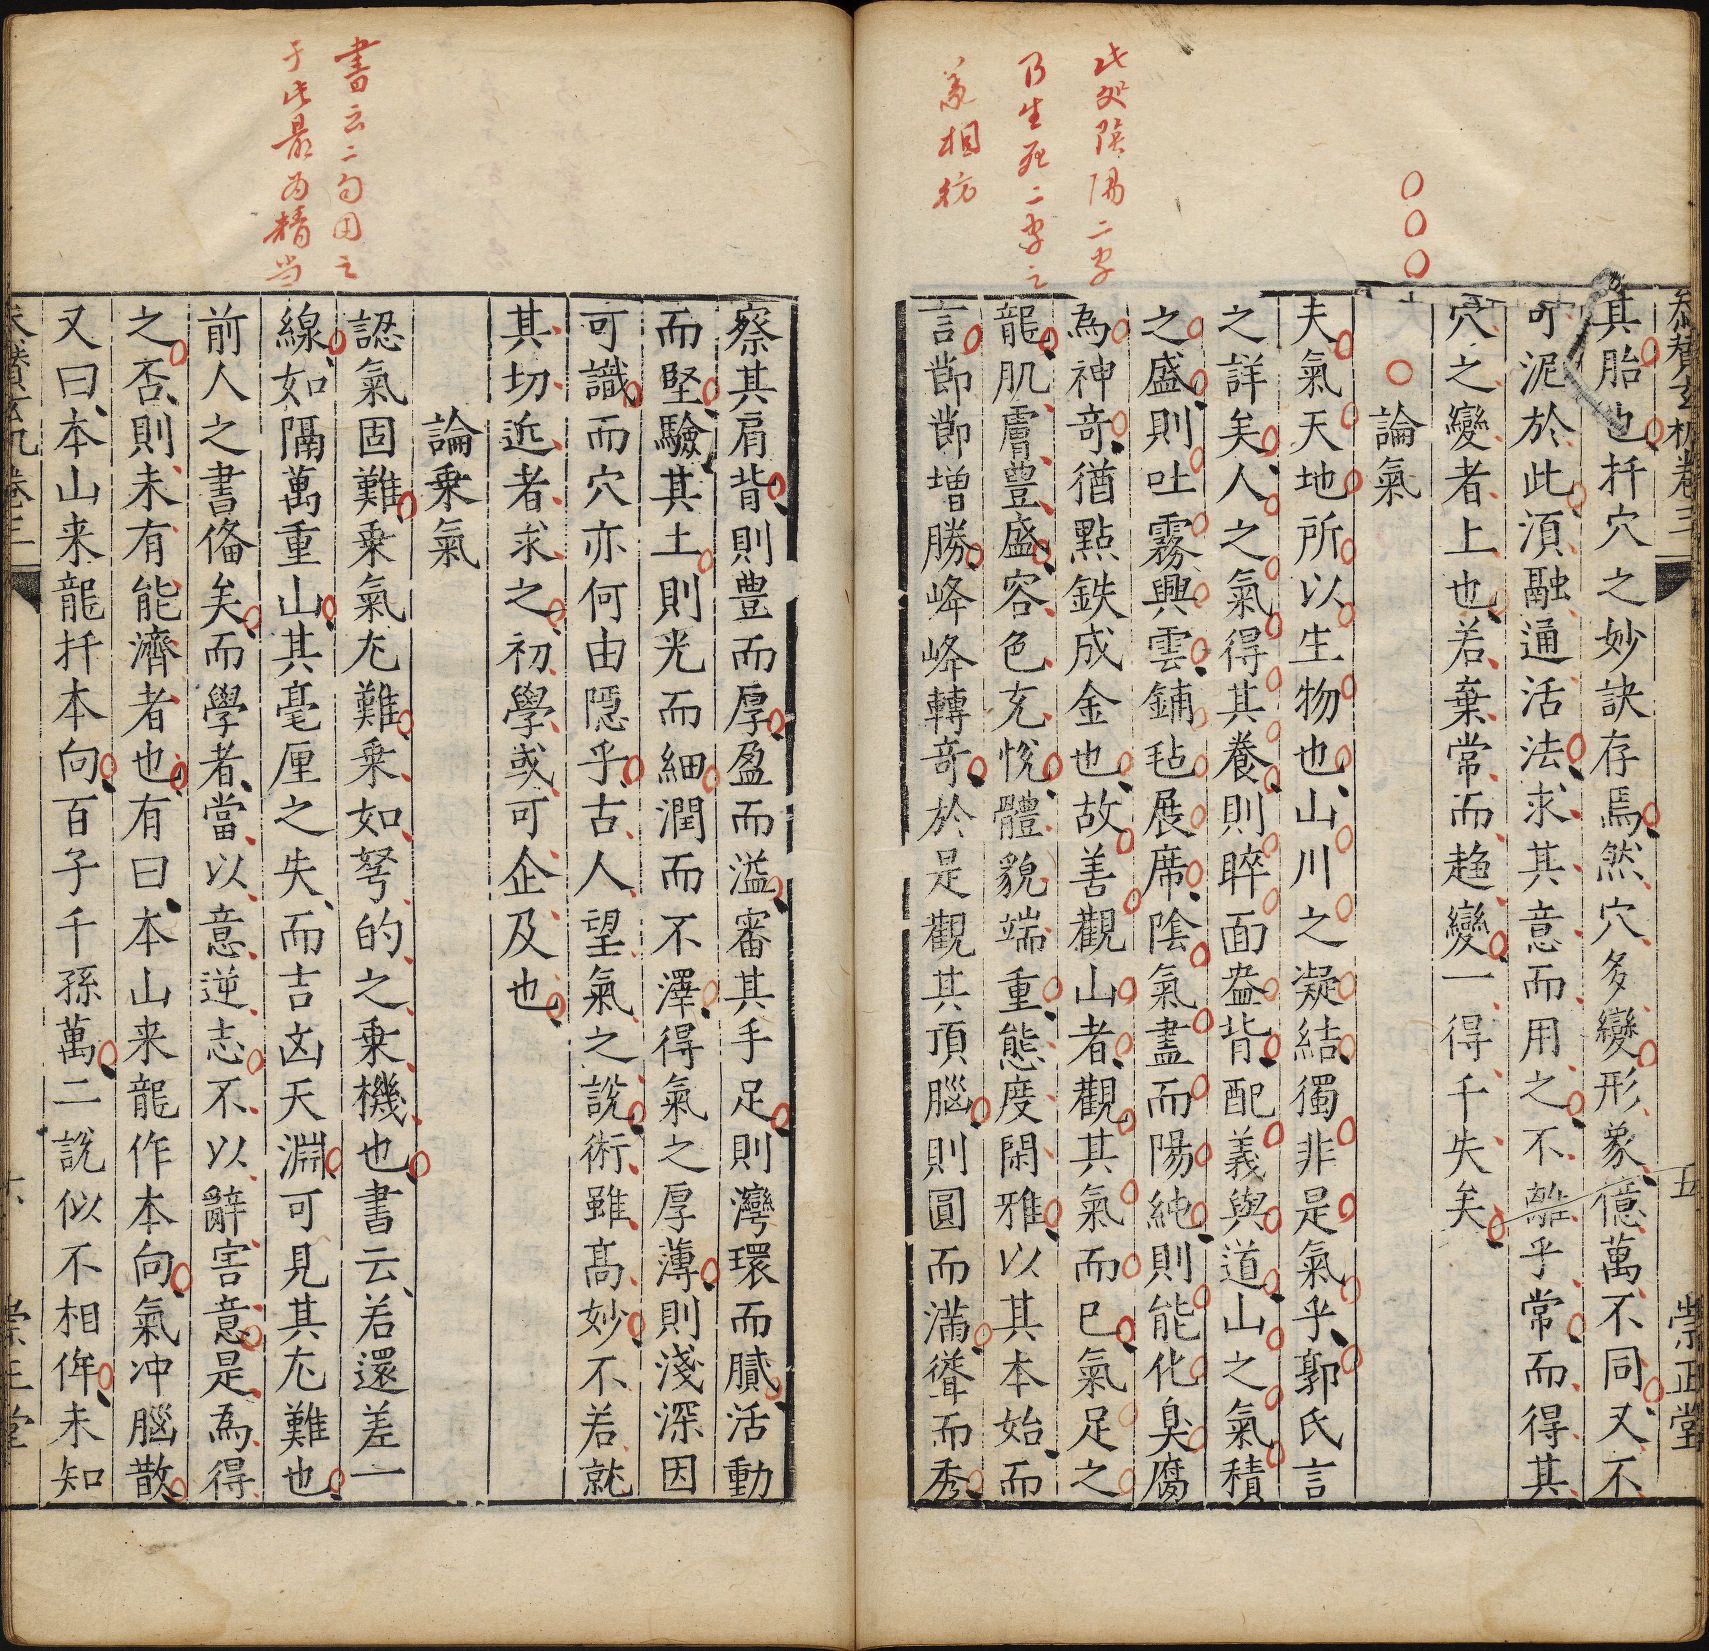 參贊玄機卷三
五
崇正堂
其胎也扦穴之妙訣存焉然穴多變形象億萬不同又不
可泥於此湏融通活法求其意而用之不離乎常而得其
穴之變者上也若棄常而趋變一得千失矣
論氣
夫氣天地所以生物也山川之凝結獨非是氣乎郭氏言
之詳矣人之氣得其養則睟面盎背配義與道山之氣積
之盛則吐霧興雲鋪毡展席陰氣盡而陽純則能化臭腐
為神竒猶點鉄成金也故善觀山者觀其氣而巳氣足之
龍肌膚豊盛容色充悅體貌端重態度閑雅以其本始而
言節節增勝峰峰轉竒於是觀其頂腦則圓而滿聳而秀
此處陰陽二字
乃生死二字之
義相彷
察其肩背則豊而厚盈而溢審其手足則灣環而膩活動
而堅驗其土則光而細潤而不澤得氣之厚薄則淺深因
可識而穴亦何由隱乎古人望氣之說術雖髙妙不若就
其切近者求之初學或可企及也
論乗氣
認氣固難乗氣尤難乗如弩的之乗機也書云若還差一
線如隔萬重山其毫厘之失而吉凶天淵可見其尤難也
前人之書俻矣而學者當以意逆志不以辭害意是為得
之否則未有能濟者也有曰本山来龍作本向氣冲腦散
又曰本山来龍扦本向百子千孫萬二說似不相侔未知
書云二句用之
于此最為精当
參贊玄机卷三
六
崇正堂